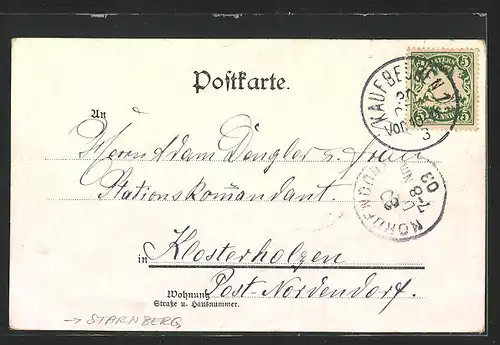 Postkarte.
BAYERN
5 5
PFENNIG
KAUFBEUREN 1
Vor.
3
An
Herrn Adam Dengler u. Frau
Stationskomandant.
NORDENDORF
7-8 N
03
in Klosterholzen
Wohnung Post Nordendorf.
Straße u. Hausnummer.
→ STARNBERG